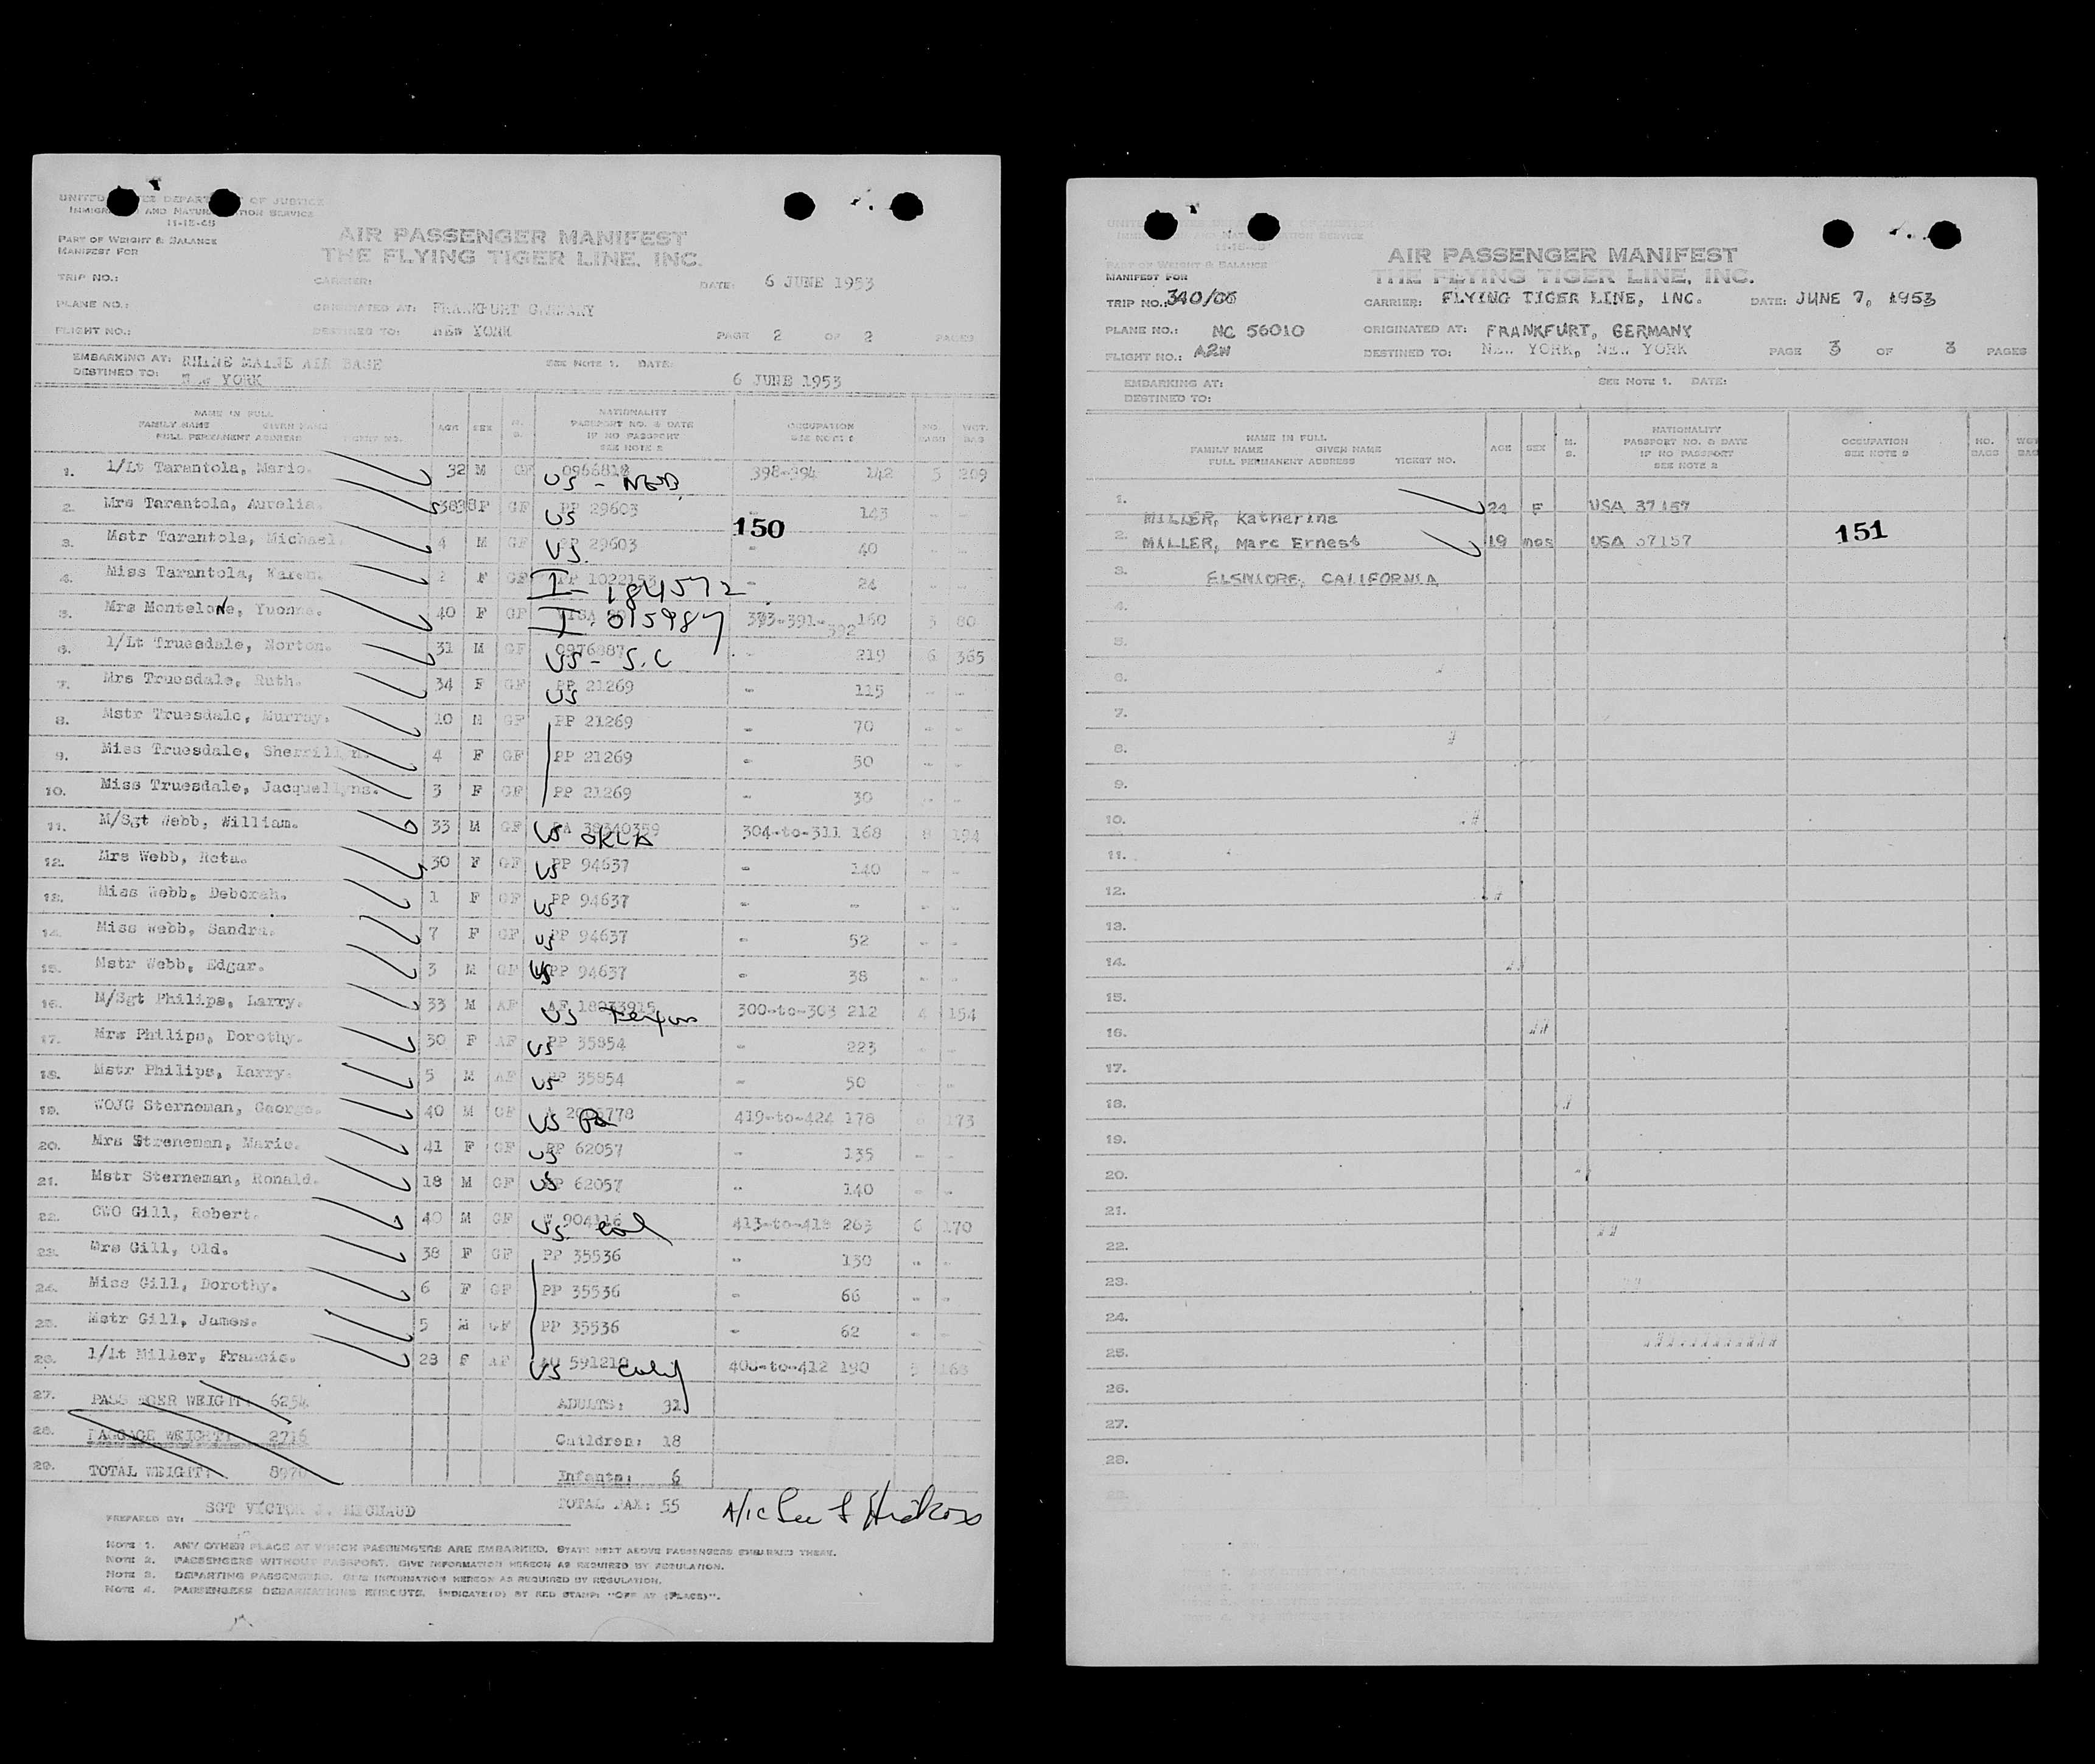 UNITED STATES DEPARTMENT OF JUSTICE
IMMIGRATION AND NATURALIZATION SERVICE
11-18-48
PART OF WEIGHT & BALANCE
MANIFEST FOR
AIR PASSENGER MANIFEST
THE FLYING TIGER LINE, INC.
TRIP NO.: CARRIER: DATE: 6 JUNE 1953
PLANE NO.: ORIGINATED AT: FRANKFURT GERMANY
FLIGHT NO.: DESTINED TO: NEW YORK PAGE 2 OF 2 PAGES
EMBARKING AT: RHINE MAINE AIR BASE SEE NOTE 1. DATE:
DESTINED TO: NEW YORK 6 JUNE 1953
NAME IN FULL
FAMILY NAME GIVEN NAME
FULL PERMANENT ADDRESS TICKET NO.
AGE SEX M. S.
NATIONALITY
PASSPORT NO. & DATE
IF NO PASSPORT
SEE NOTE 2
OCCUPATION
SEE NOTE 2
NO. BAGS WGT. BAG
1. 1/Lt Tarantola, Mario. 32 M GF 0966818 398-394 142 5 209
US -
2. Mrs Tarantola, Aurelia. 38 F GF PP 29603 - 143
US
150
3. Mstr Tarantola, Michael. 4 M GF PP 29603 - 40
US.
4. Miss Tarantola, Karen. 2 F GF PP 1022153 - 24
I-184572
5. Mrs Montelone, Yuonne. 40 F GF 393-391-392 160 3 80
I-015987
6. 1/Lt Truesdale, Morton. 31 M GF 0976887 - 219 6 365
US - S.C
7. Mrs Truesdale, Ruth. 34 F GF PP 21269 - 115
US
8. Mstr Truesdale, Murray. 10 M GF PP 21269 - 70
9. Miss Truesdale, Sherrillyn. 4 F GF PP 21269 - 50
10. Miss Truesdale, Jacquellyns. 3 F GF PP 21269 - 30
11. M/Sgt Webb, William. 33 M GF RA 38340359 304-to-311 168 8 194
US OKLA
12. Mrs Webb, Reta. 30 F GF PP 94637 - 140
US
13. Miss Webb, Deborah. 1 F GF PP 94637 - -
US
14. Miss Webb, Sandra. 7 F GF PP 94637 - 52
US
15. Mstr Webb, Edgar. 3 M GF PP 94637 - 38
US
16. M/Sgt Philips, Larry. 33 M AF AF 18033915 300-to-303 212 4 154
US Texas
17. Mrs Philips, Dorothy. 30 F AF PP 35854 - 223
US
18. Mstr Philips, Larry. 5 M AF PP 35854 - 50
US
19. WOJG Sterneman, George. 40 M GF 419-to-424 178 6 173
US Pa
20. Mrs Streneman, Marie. 41 F GF PP 62057 - 135
US
21. Mstr Sterneman, Ronald. 18 M GF PP 62057 - 140
US
22. CWO Gill, Robert. 40 M GF W 904116 413-to-418 263 6 170
US Cal
23. Mrs Gill, Old. 38 F GF PP 35536 - 130
24. Miss Gill, Dorothy. 6 F GF PP 35536 - 66
25. Mstr Gill, James. 5 M GF PP 35536 - 62
26. 1/Lt Miller, Francis. 28 F AF 408-to-412 190 5 163
US Calif
27. PASSENGER WEIGHT: 6254 ADULTS: 31
28. BAGGAGE WEIGHT: 2716 Children: 18
29. TOTAL WEIGHT: 8970 Infants: 6
PREPARED BY: SGT VICTOR J. MICHAUD TOTAL PAX: 55
NOTE 1. ANY OTHER PLACE AT WHICH PASSENGERS ARE EMBARKED. STATE NEXT ABOVE PASSENGERS EMBARKED THERE.
NOTE 2. PASSENGERS WITHOUT PASSPORT. GIVE INFORMATION HEREON AS REQUIRED BY REGULATION.
NOTE 3. DEPARTING PASSENGERS. GIVE INFORMATION HEREON AS REQUIRED BY REGULATION.
NOTE 4. PASSENGERS DEBARKATHING ENROUTE. INDICATE(D) BY RED STAMP: "OFF AT (PLACE)".
11-18-48
PART OF WEIGHT & BALANCE
MANIFEST FOR
AIR PASSENGER MANIFEST
THE FLYING TIGER LINE, INC.
TRIP NO.: 340/06 CARRIER: FLYING TIGER LINE, INC. DATE: JUNE 7, 1953
PLANE NO.: NC 56010 ORIGINATED AT: FRANKFURT, GERMANY
FLIGHT NO.: A2W DESTINED TO: NEW YORK, NEW YORK PAGE 3 OF 3 PAGES
EMBARKING AT: SEE NOTE 1. DATE:
DESTINED TO:
NAME IN FULL
FAMILY NAME GIVEN NAME
FULL PERMANENT ADDRESS TICKET NO.
AGE SEX M. S.
NATIONALITY
PASSPORT NO. & DATE
IF NO PASSPORT
SEE NOTE 2
OCCUPATION
SEE NOTE 2
NO. BAGS WGT BAG
1. MILLER, Katherine 24 F USA 37157
2. MILLER, Marc Ernest 19 mos USA 37157
151
3. ELSINORE, CALIFORNIA
4.
5.
6.
7.
8.
9.
10.
11.
12.
13.
14.
15.
16.
17.
18.
19.
20.
21.
22.
23.
24.
25.
26.
27.
28.